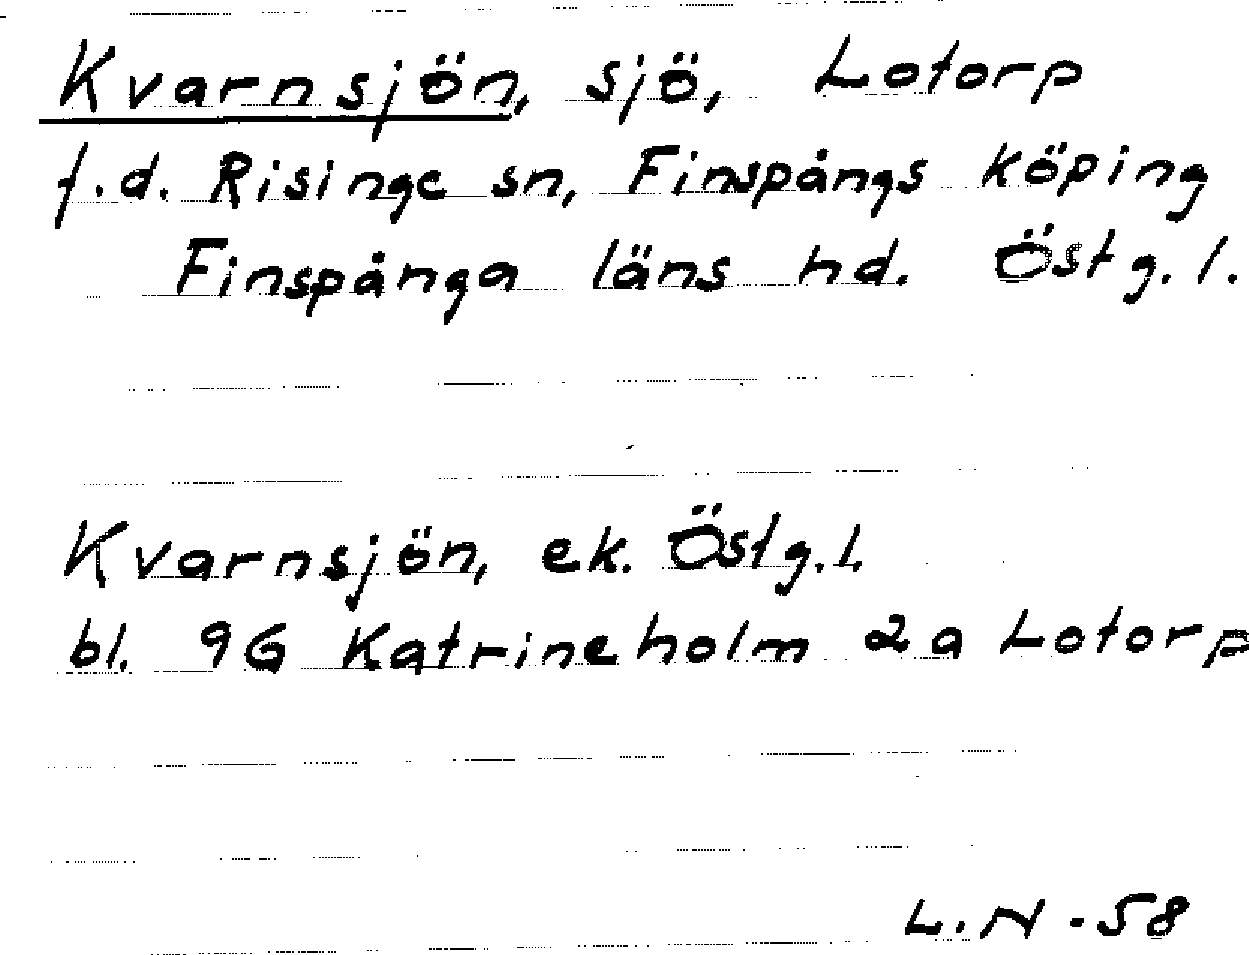 Kvarnsjön, sjö, Lotorp
f.d. Risinge sn, Finspångs köping
Finspånga läns hd. Östg.l.
Kvarnsjön, ek. Östg.l.
bl. 9G Katrineholm 2a Lotorp
L.N -58